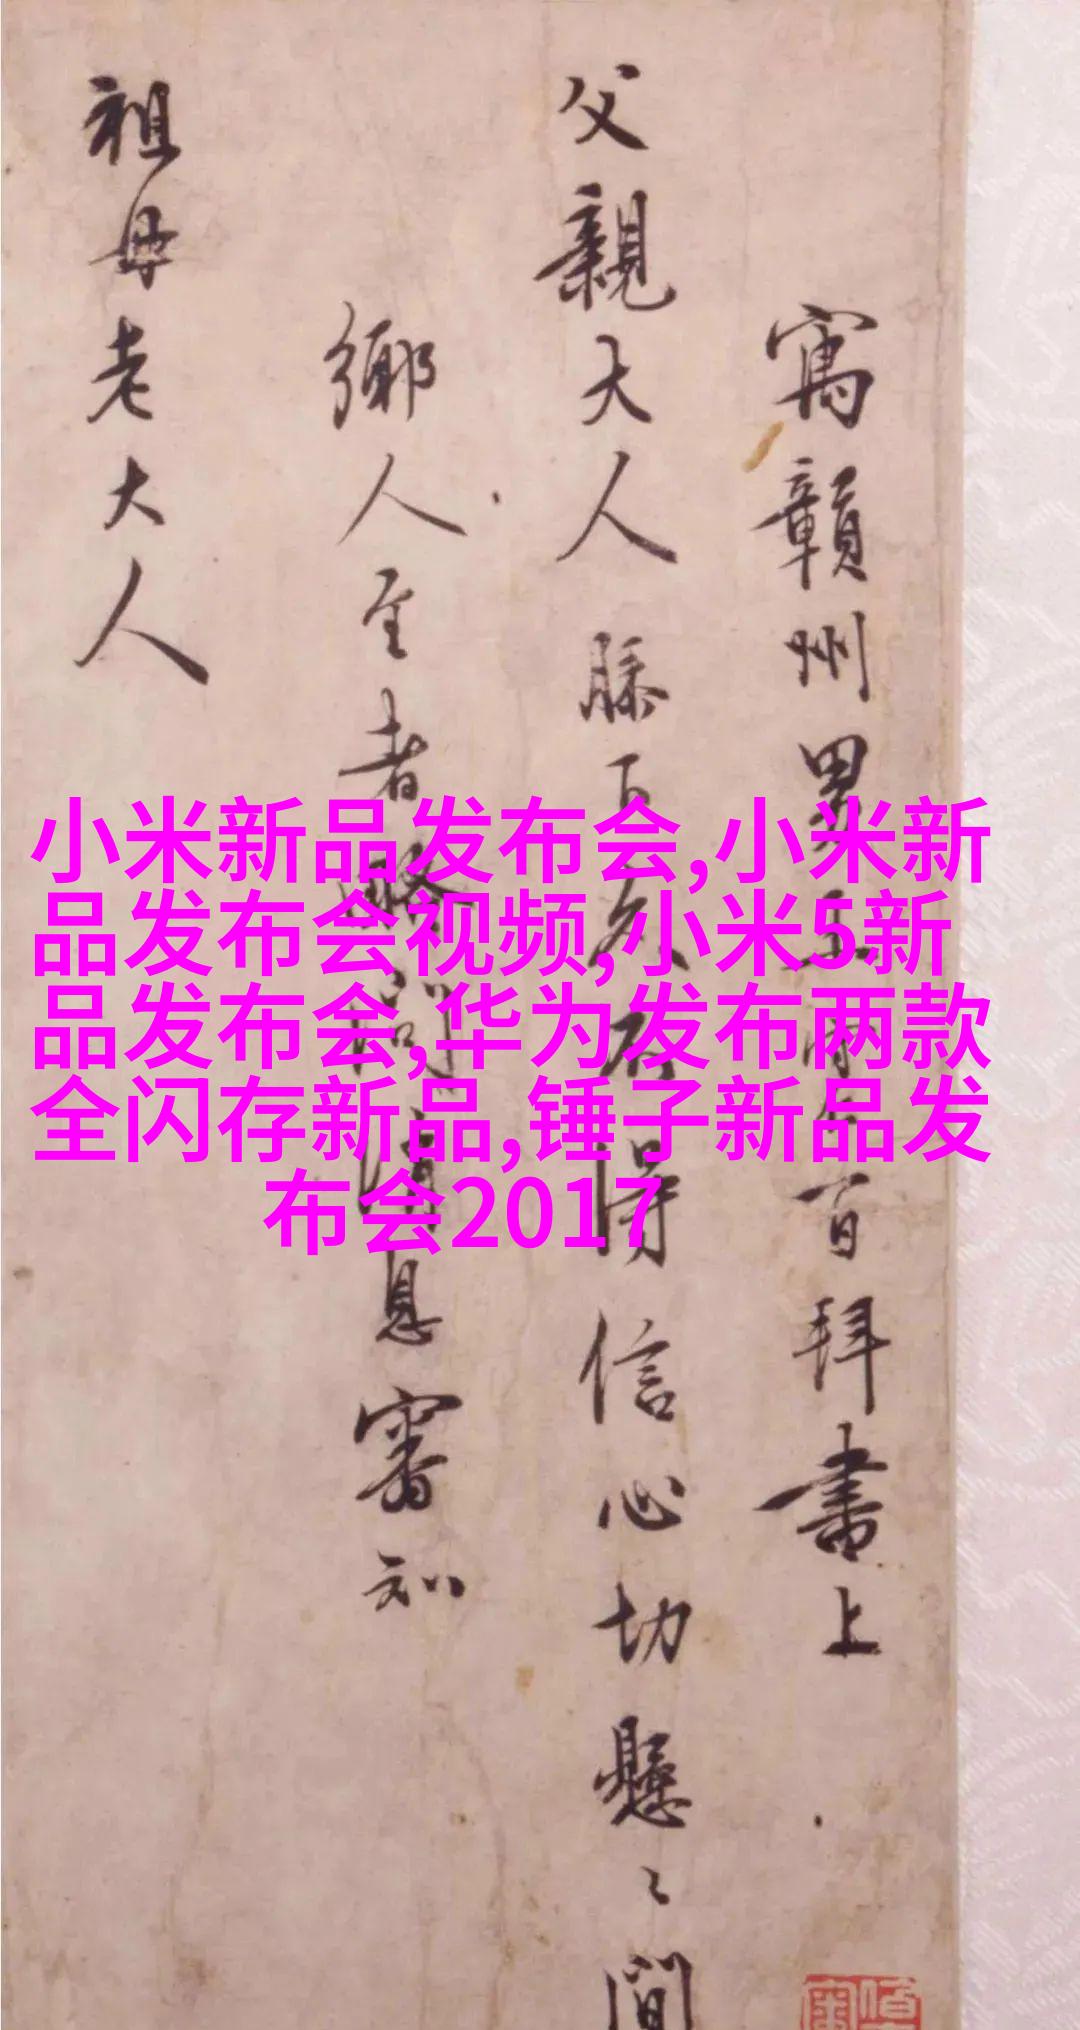 寓贛州男王守仁百拜書上
父親大人膝下久不得信心切懸〻間
鄉人至者略問消息審知
祖母老大人
小米新品发布会,小米新
品发布会视频,小米5新
品发布会,华为发布两款
全闪存新品,锤子新品发
布会2017